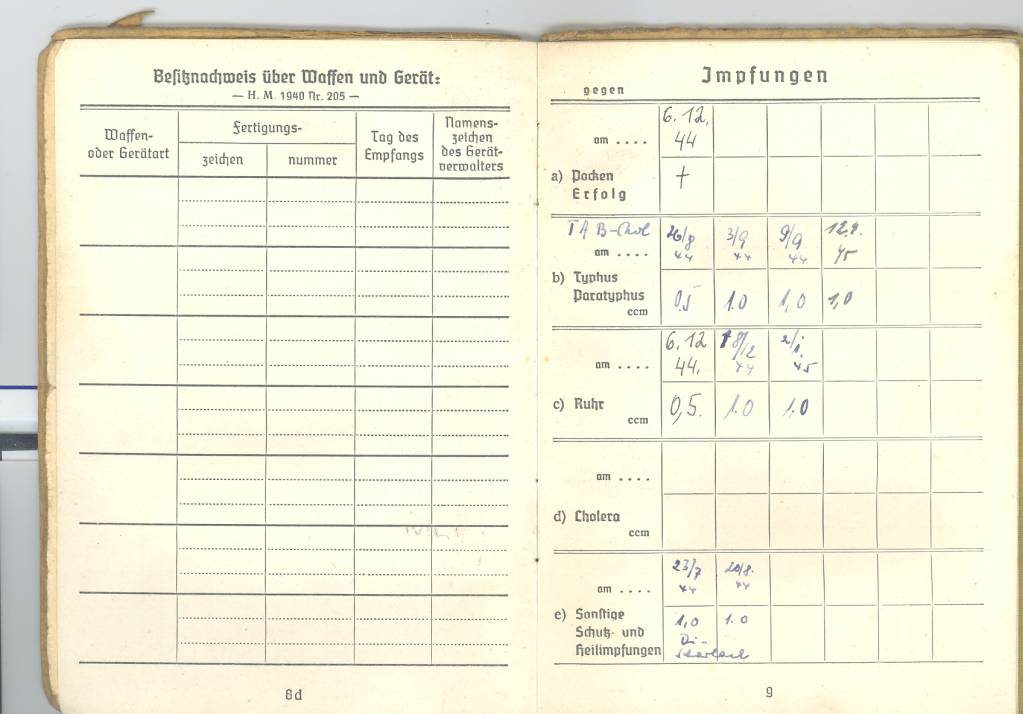 Besitznachweis über Waffen und Gerät:
— H. M. 1940 Nr. 205 —
Waffen-
oder Gerätart
Fertigungs-
zeichen
nummer
Tag des
Empfangs
Namens-
zeichen
des Gerät-
verwalters
8d
Impfungen
gegen
6. 12.
am . . . . 44
a) Pocken +
Erfolg
TAB-Chol 26/8 3/9 9/9 12.9.
am . . . . 44 44 44 45
b) Typhus
Paratyphus 0.5 1.0 1,0 1,0
ccm
6. 12 18/12 2/1.
am . . . . 44. 44 45
c) Ruhr 0,5. 1.0 1,0
ccm
am . . . .
d) Cholera
ccm
23/7 20/8.
am . . . . 44 44
e) Sonstige 1,0 1.0
Schutz- und Di-
Heilimpfungen Scharlach
9